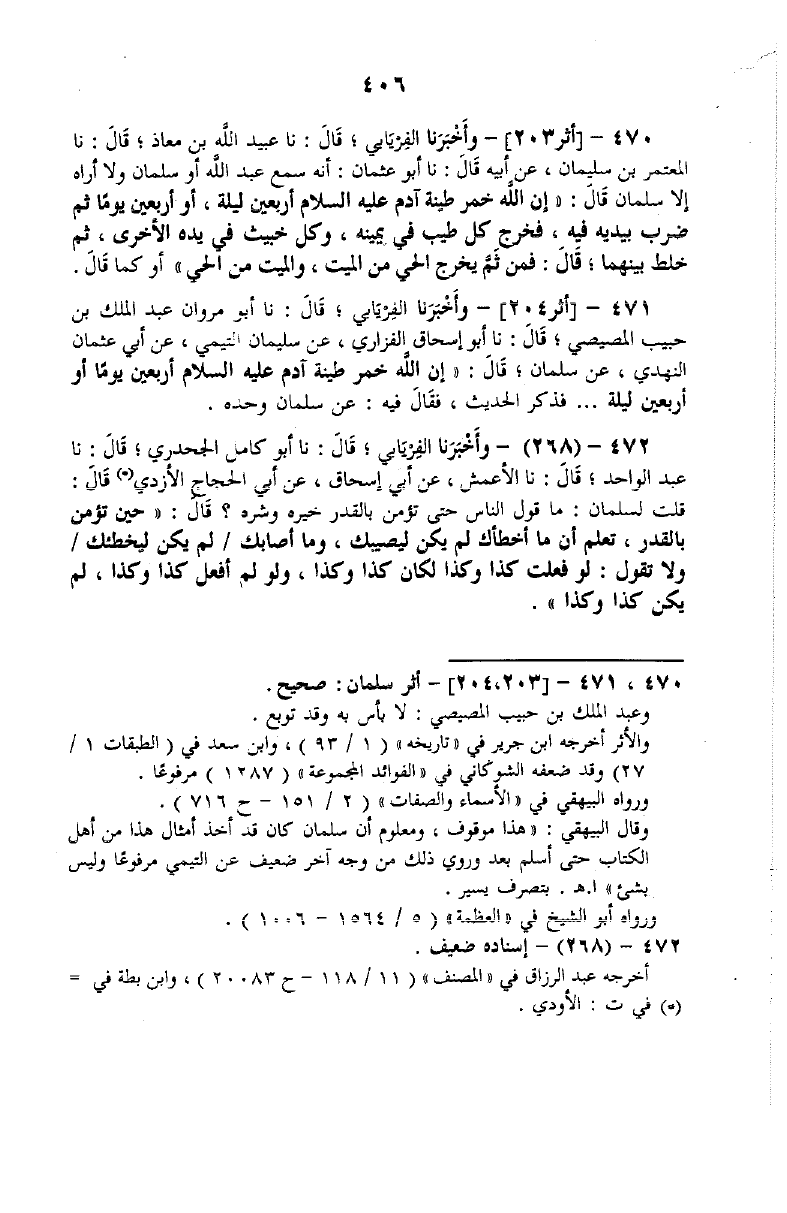 ٤٠٦
٤٧٠ - [أثر٢٠٣] - وأَخْبَرَنا الفِرْيَابي ؛ قَالَ : نا عبيد اللَّه بن معاذ ؛ قَالَ : نا
المعتمر بن سليمان ، عن أبيه قَالَ : نا أبو عثمان : أنه سمع عبد اللَّه أو سلمان ولا أراه
إلا سلمان قَالَ : « إن اللَّه خمر طينة آدم عليه السلام أربعين ليلة ، أو أربعين يومًا ثم
ضرب بيديه فيه ، فخرج كل طيب في يمينه ، وكل خبيث في يده الأخرى ، ثم
خلط بينهما ؛ قَالَ : فمن ثَمَّ يخرج الحي من الميت ، والميت من الحي » أو كما قَالَ .
٤٧١ - [أثر٢٠٤] - وأَخْبَرَنا الفِرْيَابي ؛ قَالَ : نا أبو مروان عبد الملك بن
حبيب المصيصي ؛ قَالَ : نا أبو إسحاق الفزاري ، عن سليمان التيمي ، عن أبي عثمان
النهدي ، عن سلمان ؛ قَالَ : « إن اللَّه خمر طينة آدم عليه السلام أربعين يومًا أو
أربعين ليلة ... فذكر الحديث ، فقَالَ فيه : عن سلمان وحده .
٤٧٢ - (٢٦٨) - وأَخْبَرَنا الفِرْيَابي ؛ قَالَ : نا أبو كامل الجحدري ؛ قَالَ : نا
عبد الواحد ؛ قَالَ : نا الأعمش ، عن أبي إسحاق ، عن أبي الحجاج الأزدي(*) قَالَ :
قلت لسلمان : ما قول الناس حتى تؤمن بالقدر خيره وشره ؟ قَالَ : « حين تؤمن
بالقدر ، تعلم أن ما أخطأك لم يكن ليصيبك ، وما أصابك / لم يكن ليخطئك /
ولا تقول : لو فعلت كذا وكذا لكان كذا وكذا ، ولو لم أفعل كذا وكذا ، لم
يكن كذا وكذا » .
٤٧٠ ، ٤٧١ - [٢٠٤،٢٠٣] - أثر سلمان : صحيح .
وعبد الملك بن حبيب المصيصي : لا بأس به وقد توبع .
والأثر أخرجه ابن جرير في «تاريخه» ( ١ / ٩٣ ) ، وابن سعد في ( الطبقات ١ /
٢٧) وقد ضعفه الشوكاني في «الفوائد المجموعة» ( ١٢٨٧ ) مرفوعًا .
ورواه البيهقي في «الأسماء والصفات» ( ٢ / ١٥١ - ح ٧١٦ ) .
وقال البيهقي : «هذا موقوف ، ومعلوم أن سلمان كان قد أخذ أمثال هذا من أهل
الكتاب حتى أسلم بعد وروي ذلك من وجه آخر ضعيف عن التيمي مرفوعًا وليس
بشئ» ا.هـ . بتصرف يسير .
ورواه أبو الشيخ في «العظمة» ( ٥ / ١٥٦٤ - ١٠٠٦ ) .
٤٧٢ - (٢٦٨) - إسناده ضعيف .
أخرجه عبد الرزاق في «المصنف» ( ١١ / ١١٨ - ح ٢٠٠٨٣ ) ، وابن بطة في =
(*) في ت : الأودي .